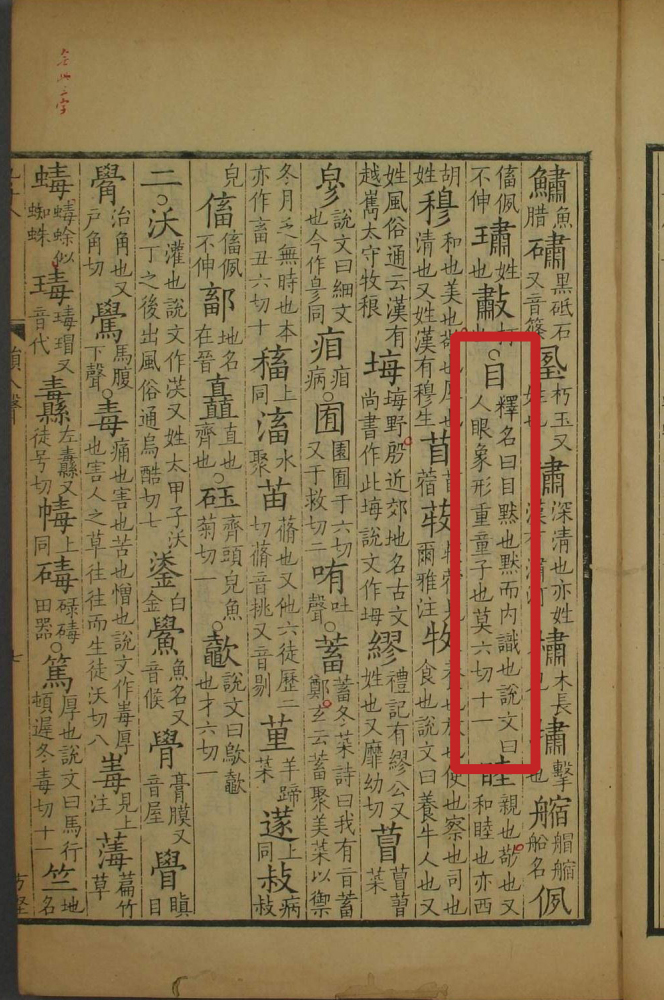 鱐魚腊 黑砥石又音篠 朽玉又姓也 肅深清也亦姓漢有 橚木長 擊也 艒䑿船名 㑉
傗㑉不伸也 璛姓 打也 ○目釋名曰目默也默而內識也說文曰人眼象形重童子也莫六切十一 睦親也敬也又和睦也亦西
胡姓 穆和也美也敬也厚也清也又姓漢有穆生 苜苜蓿 爾雅注 牧養也放也使也察也司也食也說文曰養牛人也又
姓風俗通云漢有越嶲太守牧稂 坶坶野殷近郊地名古文尚書作此坶說文作坶 繆禮記有繆公又姓也又靡幼切 菜
㣎說文曰細文也今作㣎同 病 ○囿園囿于六切又于救切二 哊吐聲 ○蓄蓄冬菜詩曰我有旨蓄鄭玄云蓄聚美菜以禦
冬月乏無時也本亦作畜丑六切十 稸上同 滀水聚 苗蓨也又他六徒歷二切蓨音挑又音剔 堇羊蹄菜 蓫上同 病
皃 傗傗㑉不伸 鄐地名在晉 矗直也齊也 ○砡齊頭皃魚菊切一 ○說文曰也才六切一
二 ○沃灌也說文作渓又姓太甲子沃丁之後出風俗通烏酷切七 鋈白金 鱟魚名又音候 膏膜又音屋 瞋目
觷治角也又戶角切 馬腹下聲 ○毒痛也害也苦也憎也說文作毒厚也害人之草往往而生徒沃切八 見上注 萹竹草
蝳蝳蜍似蜘蛛 瑇瑇瑁又音代 纛左纛又徒号切 上同 碡碌碡田器 ○篤厚也說文曰馬行頓遲冬毒切十一 竺地名